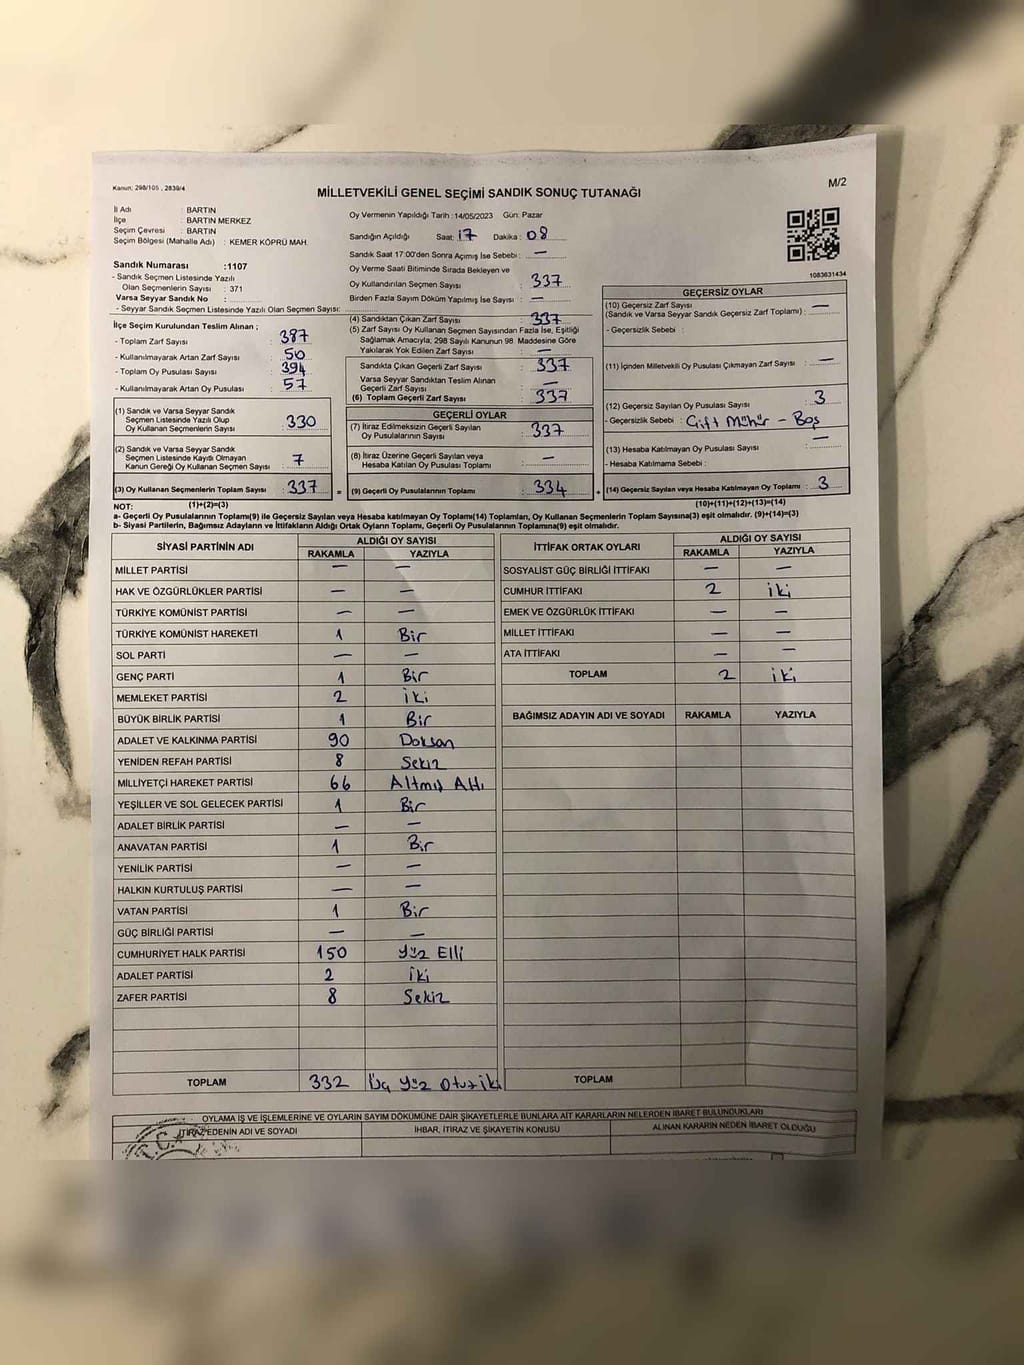 Kanun; 298/105 , 2839/4
MİLLETVEKİLİ GENEL SEÇİMİ SANDIK SONUÇ TUTANAĞI
M/2
İl Adı : BARTIN
İlçe : BARTIN MERKEZ
Seçim Çevresi : BARTIN
Seçim Bölgesi (Mahalle Adı) : KEMER KÖPRÜ MAH.
Sandık Numarası :1107
- Sandık Seçmen Listesinde Yazılı
Olan Seçmenlerin Sayısı : 371
Varsa Seyyar Sandık No :
- Seyyar Sandık Seçmen Listesinde Yazılı Olan Seçmen Sayısı:
İlçe Seçim Kurulundan Teslim Alınan ;
- Toplam Zarf Sayısı : 387
- Kullanılmayarak Artan Zarf Sayısı : 50
- Toplam Oy Pusulası Sayısı : 394
- Kullanılmayarak Artan Oy Pusulası : 57
(1) Sandık ve Varsa Seyyar Sandık
Seçmen Listesinde Yazılı Olup
Oy Kullanan Seçmenlerin Sayısı : 330
(2) Sandık ve Varsa Seyyar Sandık
Seçmen Listesinde Kaydı Olmayan
Kanun Gereği Oy Kullanan Seçmen Sayısı : 7
(3) Oy Kullanan Seçmenlerin Toplam Sayısı : 337 =
Oy Vermenin Yapıldığı Tarih :14/05/2023 Gün: Pazar
Sandığın Açıldığı Saat: 17 Dakika : 08
Sandık Saat 17:00'den Sonra Açımış İse Sebebi : —
Oy Verme Saati Bitiminde Sırada Bekleyen ve
Oy Kullandırılan Seçmen Sayısı : 337
Birden Fazla Sayım Döküm Yapılmış İse Sayısı : —
(4) Sandıktan Çıkan Zarf Sayısı : 337
(5) Zarf Sayısı Oy Kullanan Seçmen Sayısından Fazla İse, Eşitliği
Sağlamak Amacıyla; 298 Sayılı Kanunun 98. Maddesine Göre
Yakılarak Yok Edilen Zarf Sayısı : —
Sandıkta Çıkan Geçerli Zarf Sayısı : 337
Varsa Seyyar Sandıktan Teslim Alınan
Geçerli Zarf Sayısı : —
(6) Toplam Geçerli Zarf Sayısı : 337
GEÇERLİ OYLAR
(7) İtiraz Edilmeksizin Geçerli Sayılan
Oy Pusulalarının Sayısı : 337
(8) İtiraz Üzerine Geçerli Sayılan veya
Hesaba Katılan Oy Pusulası Toplamı : —
(9) Geçerli Oy Pusulalarının Toplamı : 334 +
1083631434
GEÇERSİZ OYLAR
(10) Geçersiz Zarf Sayısı —
(Sandık ve Varsa Seyyar Sandık Geçersiz Zarf Toplamı) :
- Geçersizlik Sebebi :
(11) İçinden Milletvekili Oy Pusulası Çıkmayan Zarf Sayısı : —
(12) Geçersiz Sayılan Oy Pusulası Sayısı : 3
- Geçersizlik Sebebi : Çift Mühür - Boş
(13) Hesaba Katılmayan Oy Pusulası Sayısı : —
- Hesaba Katılmama Sebebi :
(14) Geçersiz Sayılan veya Hesaba Katılmayan Oy Toplamı : 3
NOT: (1)+(2)=(3) (10)+(11)+(12)+(13)=(14)
a- Geçerli Oy Pusulalarının Toplamı(9) ile Geçersiz Sayılan veya Hesaba katılmayan Oy Toplamı(14) Toplamları, Oy Kullanan Seçmenlerin Toplam Sayısına(3) eşit olmalıdır. (9)+(14)=(3)
b- Siyasi Partilerin, Bağımsız Adayların ve İttifakların Aldığı Ortak Oyların Toplamı, Geçerli Oy Pusulalarının Toplamına(9) eşit olmalıdır.
SİYASİ PARTİNİN ADI ALDIĞI OY SAYISI
RAKAMLA YAZIYLA
MİLLET PARTİSİ — —
HAK VE ÖZGÜRLÜKLER PARTİSİ — —
TÜRKİYE KOMÜNİST PARTİSİ — —
TÜRKİYE KOMÜNİST HAREKETİ 1 Bir
SOL PARTİ — —
GENÇ PARTİ 1 Bir
MEMLEKET PARTİSİ 2 İki
BÜYÜK BİRLİK PARTİSİ 1 Bir
ADALET VE KALKINMA PARTİSİ 90 Doksan
YENİDEN REFAH PARTİSİ 8 Sekiz
MİLLİYETÇİ HAREKET PARTİSİ 66 Altmış Altı
YEŞİLLER VE SOL GELECEK PARTİSİ 1 Bir
ADALET BİRLİK PARTİSİ — —
ANAVATAN PARTİSİ 1 Bir
YENİLİK PARTİSİ — —
HALKIN KURTULUŞ PARTİSİ — —
VATAN PARTİSİ 1 Bir
GÜÇ BİRLİĞİ PARTİSİ — —
CUMHURİYET HALK PARTİSİ 150 Yüz Elli
ADALET PARTİSİ 2 İki
ZAFER PARTİSİ 8 Sekiz
TOPLAM 332 Üç Yüz Otuz İki
İTTİFAK ORTAK OYLARI ALDIĞI OY SAYISI
RAKAMLA YAZIYLA
SOSYALİST GÜÇ BİRLİĞİ İTTİFAKI — —
CUMHUR İTTİFAKI 2 İki
EMEK VE ÖZGÜRLÜK İTTİFAKI — —
MİLLET İTTİFAKI — —
ATA İTTİFAKI — —
TOPLAM 2 İki
BAĞIMSIZ ADAYIN ADI VE SOYADI RAKAMLA YAZIYLA
TOPLAM
OYLAMA İŞ VE İŞLEMLERİNE VE OYLARIN SAYIM DÖKÜMÜNE DAİR ŞİKAYETLERLE BUNLARA AİT KARARLARIN NELERDEN İBARET BULUNDUKLARI
İTİRAZ EDENİN ADI VE SOYADI İHBAR, İTİRAZ VE ŞİKAYETİN KONUSU ALINAN KARARIN NEDEN İBARET OLDUĞU
T.C.